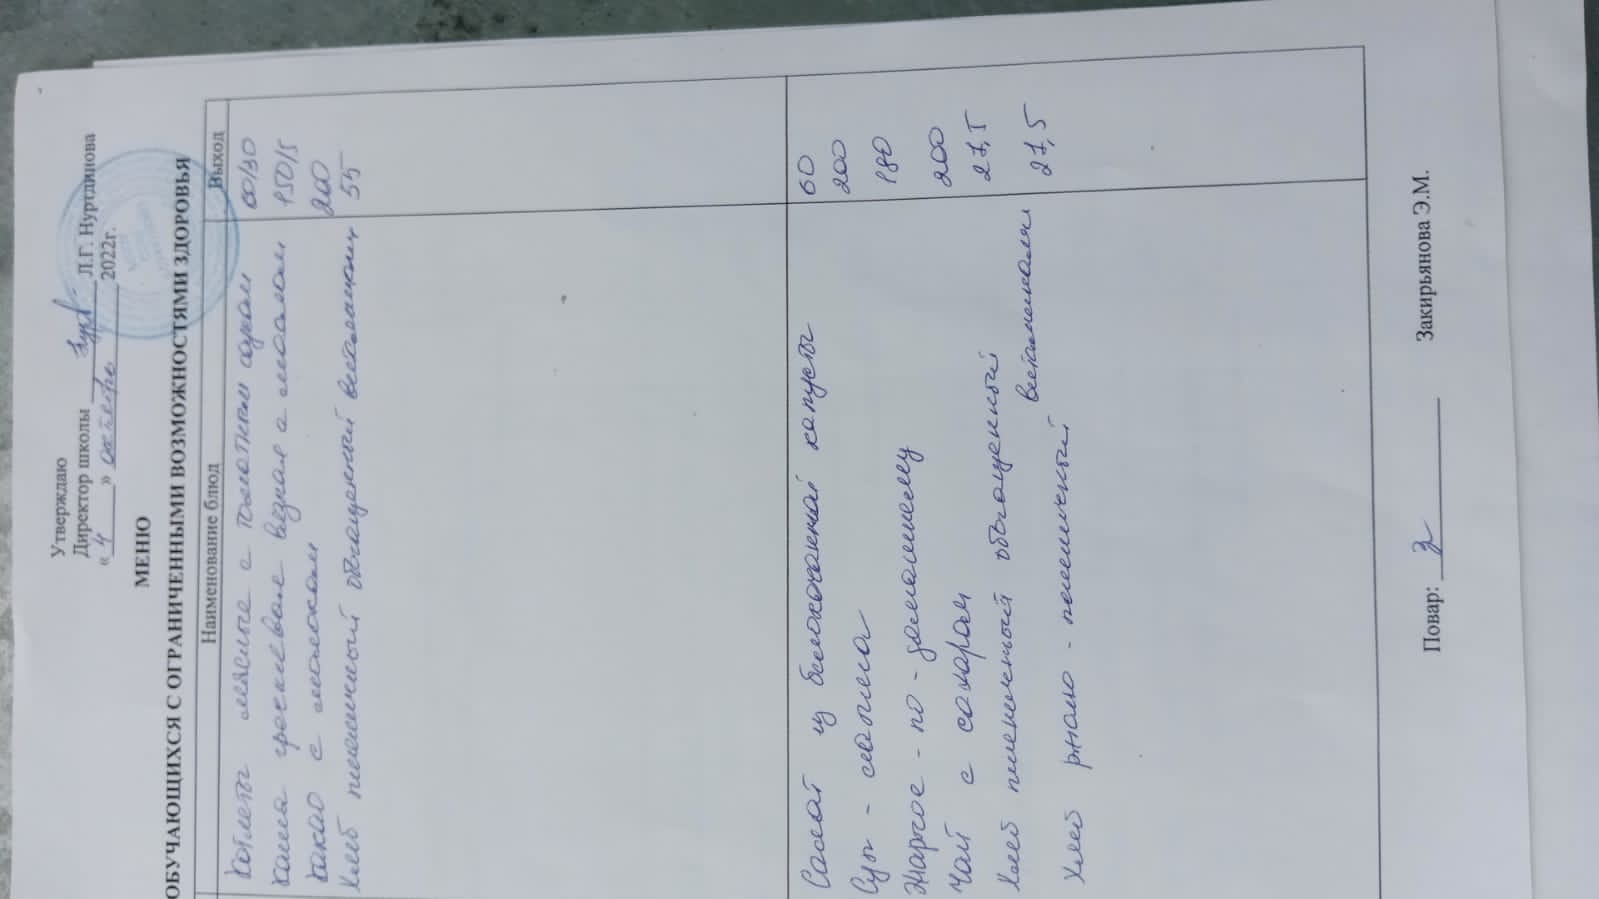 Утверждаю
Директор школы Л.Г. Нурдинова
« 4 » октября 2022г.
МЕНЮ
ОБУЧАЮЩИХСЯ С ОГРАНИЧЕННЫМИ ВОЗМОЖНОСТЯМИ ЗДОРОВЬЯ
Наименование блюд Выход
Котлеты мясные с томатным соусом 60/30
Каша гречневая вязкая с маслом 150/5
Какао с молоком 200
Хлеб пшеничный обогащенный витаминами 55
Салат из белокочанной капусты 60
Суп - 200
Жаркое - по - домашнему 180
Чай с сахаром 200
Хлеб пшеничный обогащенный 27,5
витаминами
Хлеб ржано - пшеничный 27,5
Повар: Закирьянова Э.М.